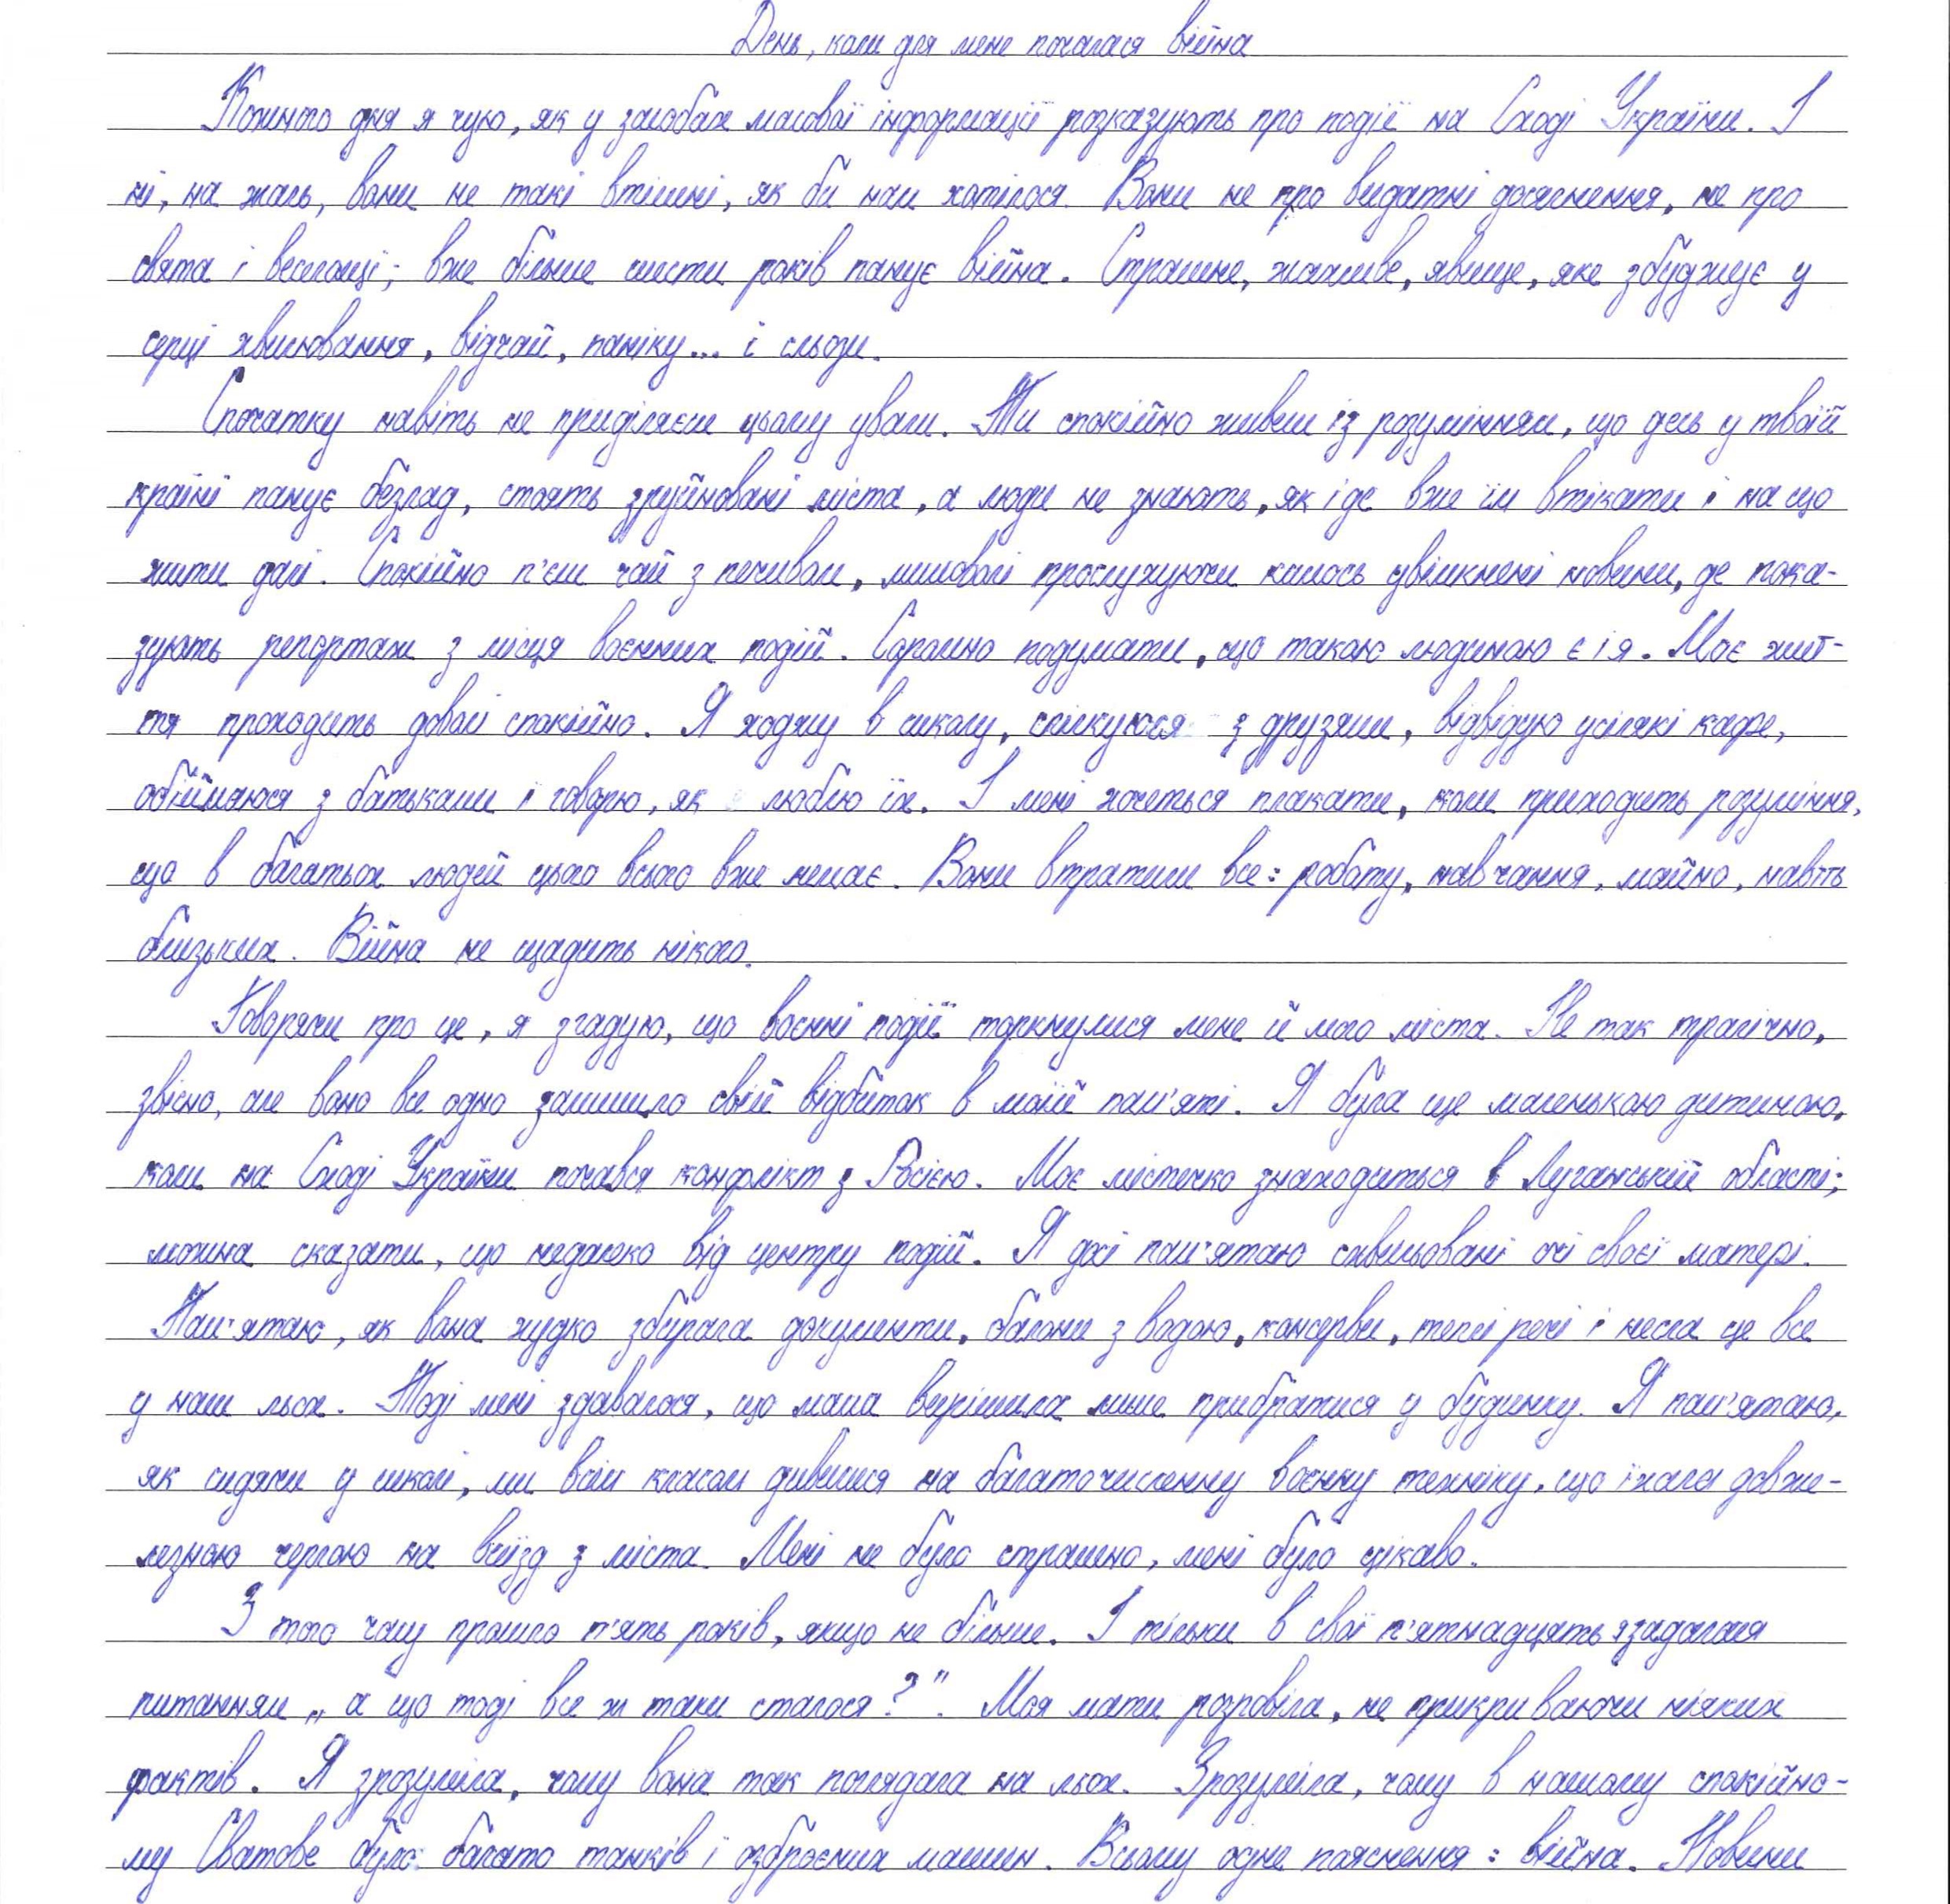 День, коли для мене почалася війна
Кожного дня я чую, як у засобах масової інформації розказують про події на Сході України. І
ні, на жаль, вони не такі втішні, як би нам хотілося. Вони не про видатні досягнення, не про
свята і веселощі; вже більше шести років панує війна. Страшне, жахливе, явище, яке збуджує у
серці хвилювання, відчай, паніку... і сльози.
Спочатку навіть не приділяєш цьому уваги. Ти спокійно живеш із розумінням, що десь у твоїй
країні панує безлад, стоять зруйновані міста, а люди не знають, як і де вже їм втікати і на що
жити далі. Спокійно п'єш чай з печивом, мимоволі прослухуючи кимось увімкнені новини, де пока-
зують репортаж з місця воєнних подій. Соромно подумати, що такою людиною є і я. Моє жит-
тя проходить доволі спокійно. Я ходжу в школу, спілкуюся з друзями, відвідую усілякі кафе,
обіймаюся з батьками і говорю, як люблю їх. І мені хочеться плакати, коли приходить розуміння,
що в багатьох людей цього всього вже немає. Вони втратили все: роботу, навчання, майно, навіть
близьких. Війна не щадить нікого.
Говорячи про це, я згадую, що воєнні події торкнулися мене й мого міста. Не так трагічно,
звісно, але воно все одно залишило свій відбиток в моїй пам'яті. Я була ще маленькою дитиною,
коли на Сході України почався конфлікт з Росією. Моє містечко знаходиться в Луганській області;
можна сказати, що недалеко від центру подій. Я досі пам'ятаю схвильовані очі своєї матері.
Пам'ятаю, як вона худко збирала документи, балони з водою, консерви, теплі речі і несла це все
у наш льох. Тоді мені здавалося, що мама вирішила лише прибратися у будинку. Я пам'ятаю,
як сидячи у школі, ми всім класом дивилися на багаточисленну воєнну техніку, що їхала довже-
лезною чергою на виїзд з міста. Мені не було страшно, мені було цікаво.
З того часу пройшло п'ять років, якщо не більше. І тільки в свої п'ятнадцять я задалася
питанням „а що тоді все ж таки сталося?". Моя мати розповіла, не прикриваючи ніяких
фактів. Я зрозуміла, чому вона так поглядала на льох. Зрозуміла, чому в нашому спокійно-
му Сватове було багато танків і озброєних машин. Всьому одне пояснення: війна. Новини